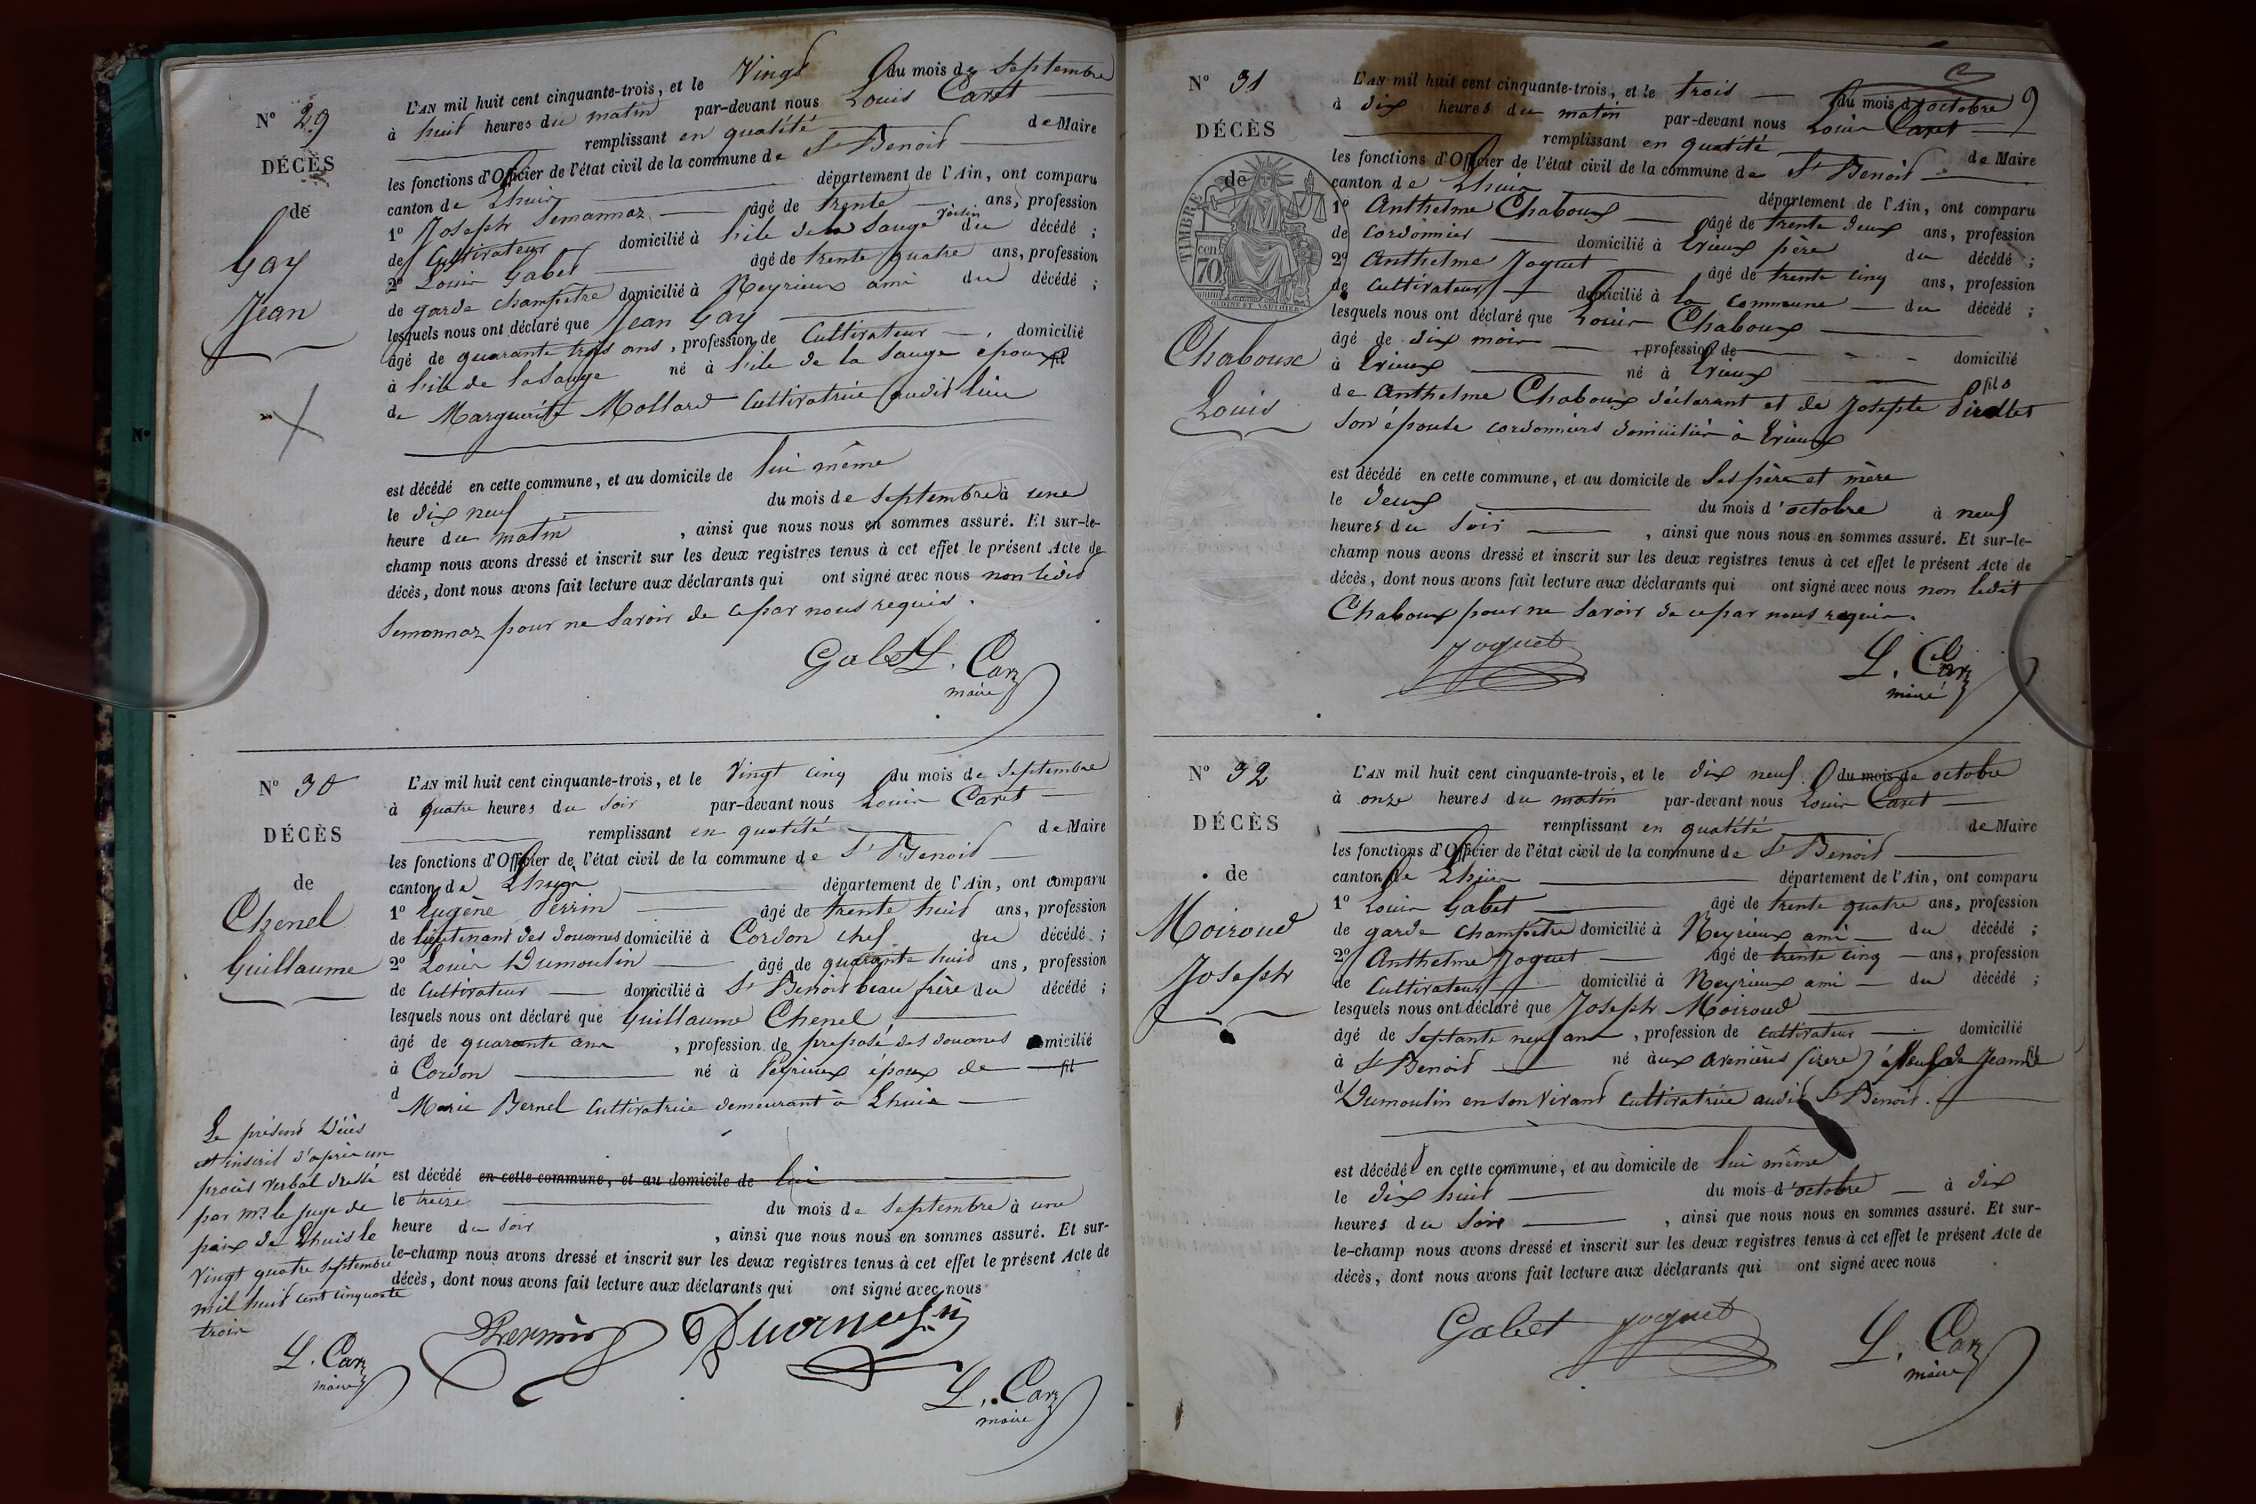 N° 29
DÉCÈS
de
Gay
Jean
L'AN mil huit cent cinquante-trois, et le Vingt du mois de Septembre
à huit heures du matin par-devant nous Louis Caret
remplissant en qualité de Maire
les fonctions d'Officier de l'état civil de la commune de St Benoit
canton de Lhuis département de l'Ain, ont comparu
1° Joseph Semannaz âgé de trente ans, profession
de Cultivateur domicilié à l'ile de la Sauge voisin du décédé ;
2° Louis Gabet âgé de trente quatre ans, profession
de garde champêtre domicilié à Neyrieux ami du décédé ;
lesquels nous ont déclaré que Jean Gay
âgé de quarante trois ans, profession de Cultivateur, domicilié
à l'ile de la Sauge né à l'ile de la Sauge époux
de Marguerite Mollard Cultivatrice audit lieu
est décédé en cette commune, et au domicile de lui même
le dix neuf du mois de Septembre à une
heure du matin, ainsi que nous nous en sommes assuré. Et sur-le-
champ nous avons dressé et inscrit sur les deux registres tenus à cet effet le présent Acte de
décès, dont nous avons fait lecture aux déclarants qui ont signé avec nous non ledit
Semannaz pour ne savoir de ce par nous requis.
Gabet L. Caret
maire
N° 30
DÉCÈS
de
Chenel
Guillaume
L'AN mil huit cent cinquante-trois, et le Vingt cinq du mois de Septembre
à quatre heures du soir par-devant nous Louis Caret
remplissant en qualité de Maire
les fonctions d'Officier de l'état civil de la commune de St Benoit
canton de Lhuis département de l'Ain, ont comparu
1° Eugène Perrin âgé de trente huit ans, profession
de lieutenant des douanes domicilié à Cordon chef du décédé ;
2° Louis Dumoulin âgé de quarante huit ans, profession
de Cultivateur domicilié à St Benoit beau frère du décédé ;
lesquels nous ont déclaré que Guillaume Chenel
âgé de quarante ans, profession de préposé des douanes domicilié
à Cordon né à Peyrieux époux de fil
d Marie Bernel Cultivatrice demeurant à Lhuis
est décédé en cette commune, et au domicile de lui
le treize du mois de Septembre à une
heure du soir, ainsi que nous nous en sommes assuré. Et sur-
le-champ nous avons dressé et inscrit sur les deux registres tenus à cet effet le présent Acte de
décès, dont nous avons fait lecture aux déclarants qui ont signé avec nous
Le présent Décès
est inscrit d'après un
procès verbal dressé
par Mr le juge de
paix de Lhuis le
Vingt quatre Septembre
mil huit cent cinquante
trois
L. Caret
maire
Perrin
L. Caret
maire
N° 31
DÉCÈS
de
TIMBRE
70 cen
Chaboux
Louis
9
L'AN mil huit cent cinquante-trois, et le trois du mois d'octobre
à dix heures du matin par-devant nous Louis Caret
remplissant en qualité de Maire
les fonctions d'Officier de l'état civil de la commune de St Benoit
canton de Lhuis département de l'Ain, ont comparu
1° Anthelme Chaboux âgé de trente deux ans, profession
de Cordonnier domicilié à Evieux père du décédé ;
2° Anthelme Joguet âgé de trente cinq ans, profession
de Cultivateur domicilié à la Commune du décédé ;
lesquels nous ont déclaré que Louis Chaboux
âgé de dix mois, profession de domicilié
à Evieux né à Evieux fils
de Anthelme Chaboux déclarant et de Josephte
son épouse cordonniers domiciliés à Evieux
est décédé en cette commune, et au domicile de Ses père et mère
le deux du mois d'octobre à neuf
heures du soir, ainsi que nous nous en sommes assuré. Et sur-le-
champ nous avons dressé et inscrit sur les deux registres tenus à cet effet le présent Acte de
décès, dont nous avons fait lecture aux déclarants qui ont signé avec nous non ledit
Chaboux pour ne savoir de ce par nous requis.
Joguet L. Caret
maire
N° 32
DÉCÈS
de
Moiroud
Joseph
L'AN mil huit cent cinquante-trois, et le dix neuf du mois de octobre
à onze heures du matin par-devant nous Louis Caret
remplissant en qualité de Maire
les fonctions d'Officier de l'état civil de la commune de St Benoit
canton de Lhuis département de l'Ain, ont comparu
1° Louis Gabet âgé de trente quatre ans, profession
de garde champêtre domicilié à Neyrieux ami du décédé ;
2° Anthelme Joguet âgé de trente cinq ans, profession
de Cultivateur domicilié à Neyrieux ami du décédé ;
lesquels nous ont déclaré que Joseph Moiroud
âgé de Septante neuf ans, profession de cultivateur domicilié
à St Benoit né aux avenières (isere) veuf de Jeanne
d Dumoulin en son vivant Cultivatrice audit St Benoit.
est décédé en cette commune, et au domicile de lui même
le dix huit du mois d'octobre à dix
heures du soir, ainsi que nous nous en sommes assuré. Et sur-
le-champ nous avons dressé et inscrit sur les deux registres tenus à cet effet le présent Acte de
décès, dont nous avons fait lecture aux déclarants qui ont signé avec nous
Gabet Joguet L. Caret
maire